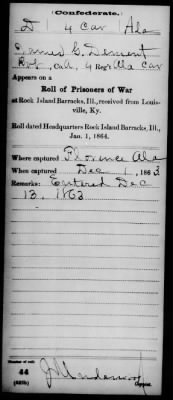 Confederate.
D 4 Cav Ala
James C. Dement
Pvt, Co. , 4 Reg't Ala Cav
Appears on a
Roll of Prisoners of War
at Rock Island Barracks, Ill., received from Louis-
ville, Ky.
Roll dated Headquarters Rock Island Barracks, Ill.,
Jan. 1, 1864.
Where captured Florence Ala
When captured Dec 1, 1863
Remarks: Entered Dec
13, 1863
Number of roll:
44
(639b)
J M Underwood
Copyist.